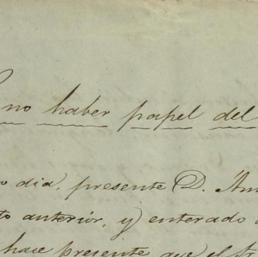 no haber papel del
dia, presente D.
anteriór, y enterado
hace presente que el